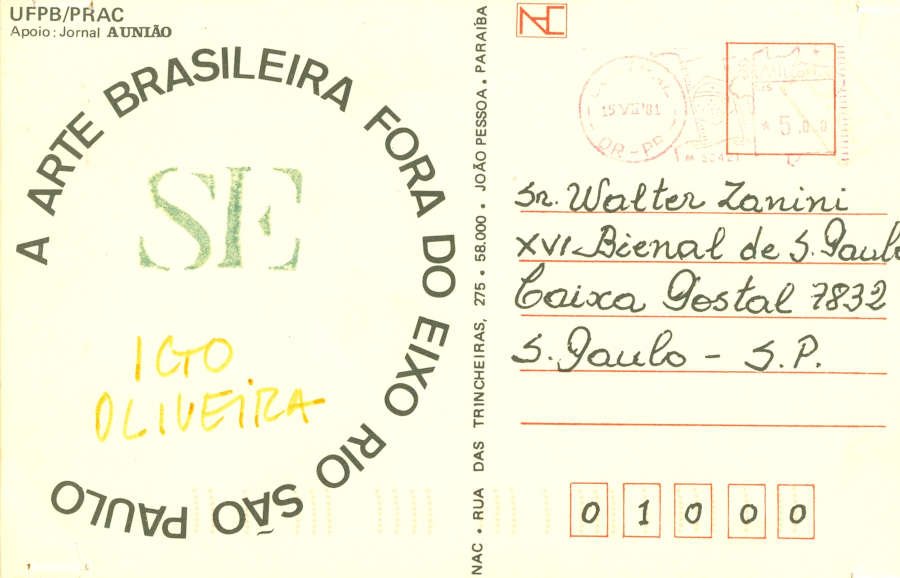 UFPB/PRAC
Apoio: Jornal A UNIÃO
A ARTE BRASILEIRA FORA DO EIXO RIO SÃO PAULO
SE
OLIVEIRA
NAC. RUA DAS TRINCHEIRAS, 275. 58.000. JOÃO PESSOA. PARAÍBA
15 VII 81
Sr. Walter Zanini
XVI Bienal de S. Paulo
Caixa Postal 7832
S. Paulo - S.P.
0 1 0 0 0